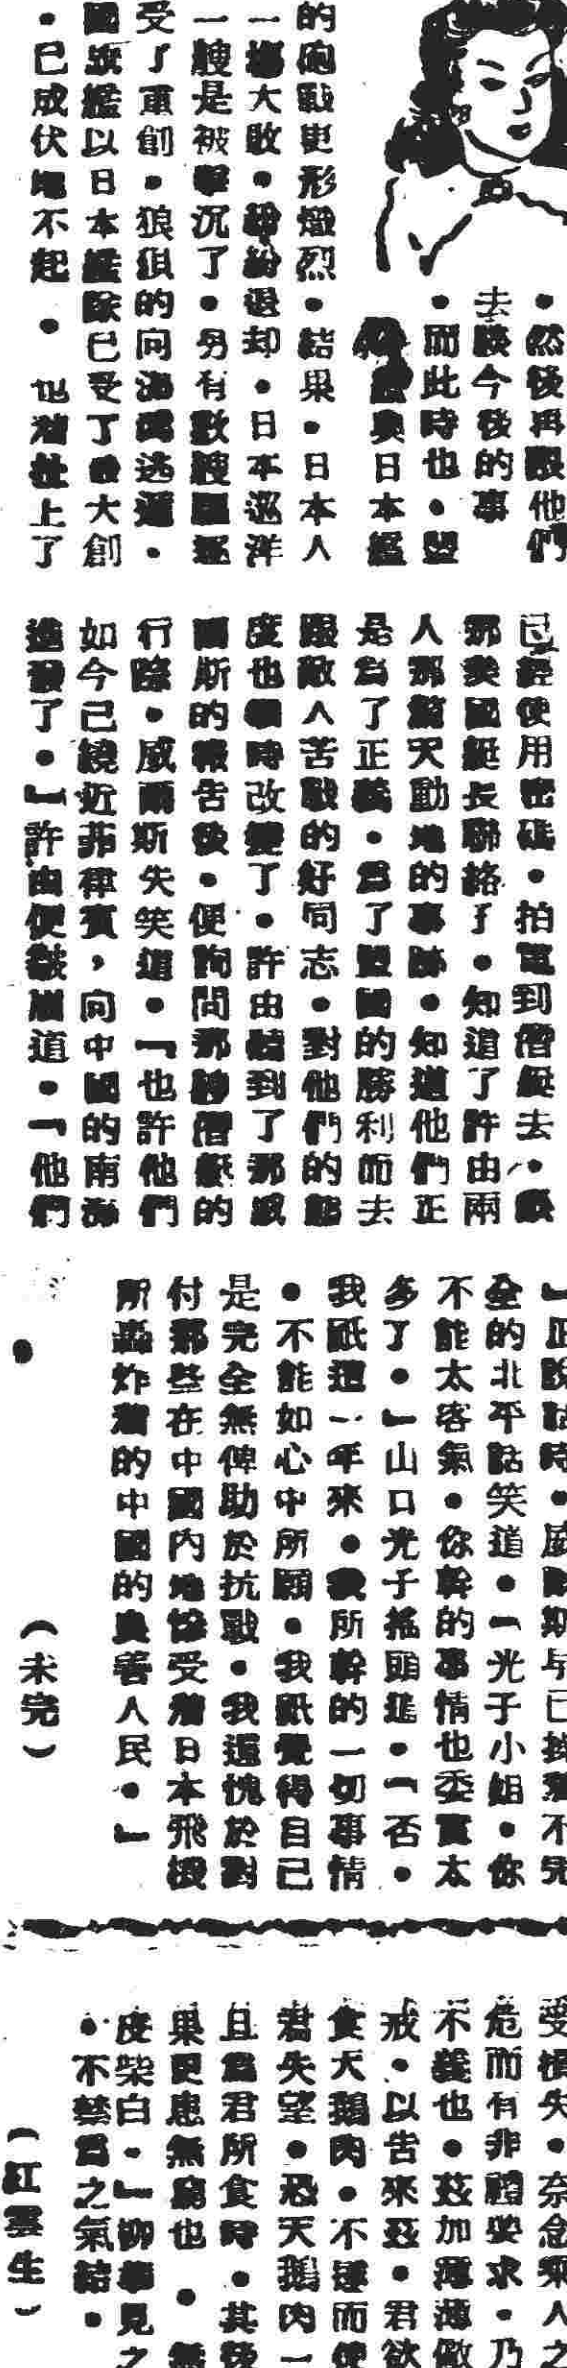 ●然後再跟他們
去談今後的事
●而此時也●盟
艦與日本艦
的砲戰更形熾烈●結果●日本人
一塲大敗●紛紛退却●日本巡洋
一艘是被擊沉了●另有數艘驅逐
受了重創●狼狽的向海邊逃遁●
國旗艦以日本艦隊已受了大創
●已成伏地不起●也追趕上了
已經使用密碼●拍電到潛艇去●
那美國艇長聯絡了●知道了許由兩
人那驚天動地的事跡●知道他們正
是爲了正義●爲了盟國的勝利而去
跟敵人苦戰的好同志●對他們的態
度也頓時改變了●許由聽到了那威
爾斯的報告後●便詢問那艘潛艇的
行蹤●威爾斯失笑道●『也許他們
如今已繞近菲律賓，向中國的南海
進發了●』許由便皺眉道●『他們
』正說話時●威爾斯与已
全的北平話笑道●『光子小姐●你
不能太客氣●你幹的事情也委實太
多了●』山口光子搖頭道●『否●
我祇這一年來●我所幹的一切事情
●不能如心中所願●我祇覺得自己
是完全無俾助於抗戰●我還愧於對
付那些在中國內地慘受着日本飛機
所轟炸着的中國的良善人民●』
（未完）
受損失●奈念乘人之
危而有非禮要求●乃
不義也●茲加薄薄儆
戒●以告來茲●君欲
食天鵝肉●不遂而使
君失望●恐天鵝肉一
且爲君所食時●其後
果更患無窮也●無
皮柴白●』柳華見之
●不禁爲之氣結●
（紅雲生）